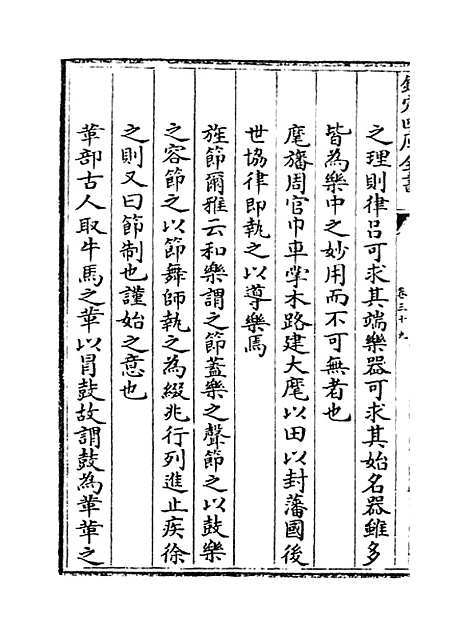 欽定四庫全書
卷三十九
之理則律呂可求其端樂器可求其始名器雖多
皆為樂中之妙用而不可無者也
麾旛周官巾車掌木路建大麾以田以封藩國後
世協律即執之以導樂焉
旌節爾雅云和樂謂之節蓋樂之聲節之以鼓樂
之容節之以節舞師執之為綴兆行列進止疾徐
之則又曰節制也謹始之意也
革部古人取牛馬之革以冒鼓故謂鼓為革革之